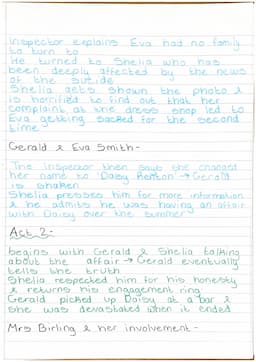 Inspector explains Eva had no family
to turn to
He turned to Shelia who has
been deeply affected by the news
of the suicide
Shelia gets shown the photo &
is horrified to find out that her
complaint at the dress shop led to
Eva getting sacked for the second
time
Gerald & Eva Smith-
The Inspector then says she changed
her name to 'Daisy Renton' → Gerald
is shaken
Shelia presses him for more information
& he admits he was having an affair
with Daisy over the summer
Act 2-
begins with Gerald & Shelia talking
about the affair → Gerald eventually
tells the truth
Shelia respected him for his honesty
& returns his engagement ring
Gerald picked up Daisy at a bar &
she was devastated when it ended
Mrs Birling & her involvement-